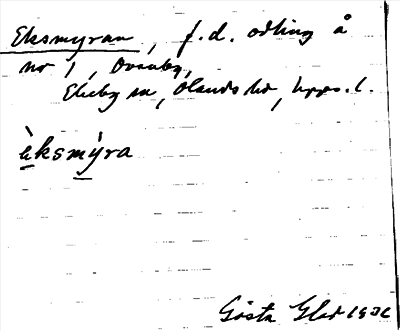 Eksmyran, f.d. odling å
nr 1, Ovanby,
Ekeby sn, Olands hd, Upps. l.
èksmỳra
Gösta Glad